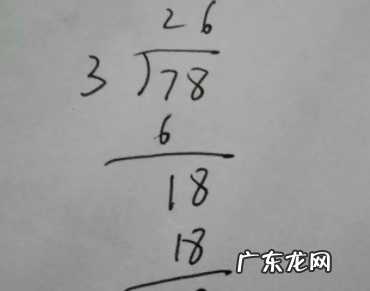 26
3)78
6
18
18
广东龙网